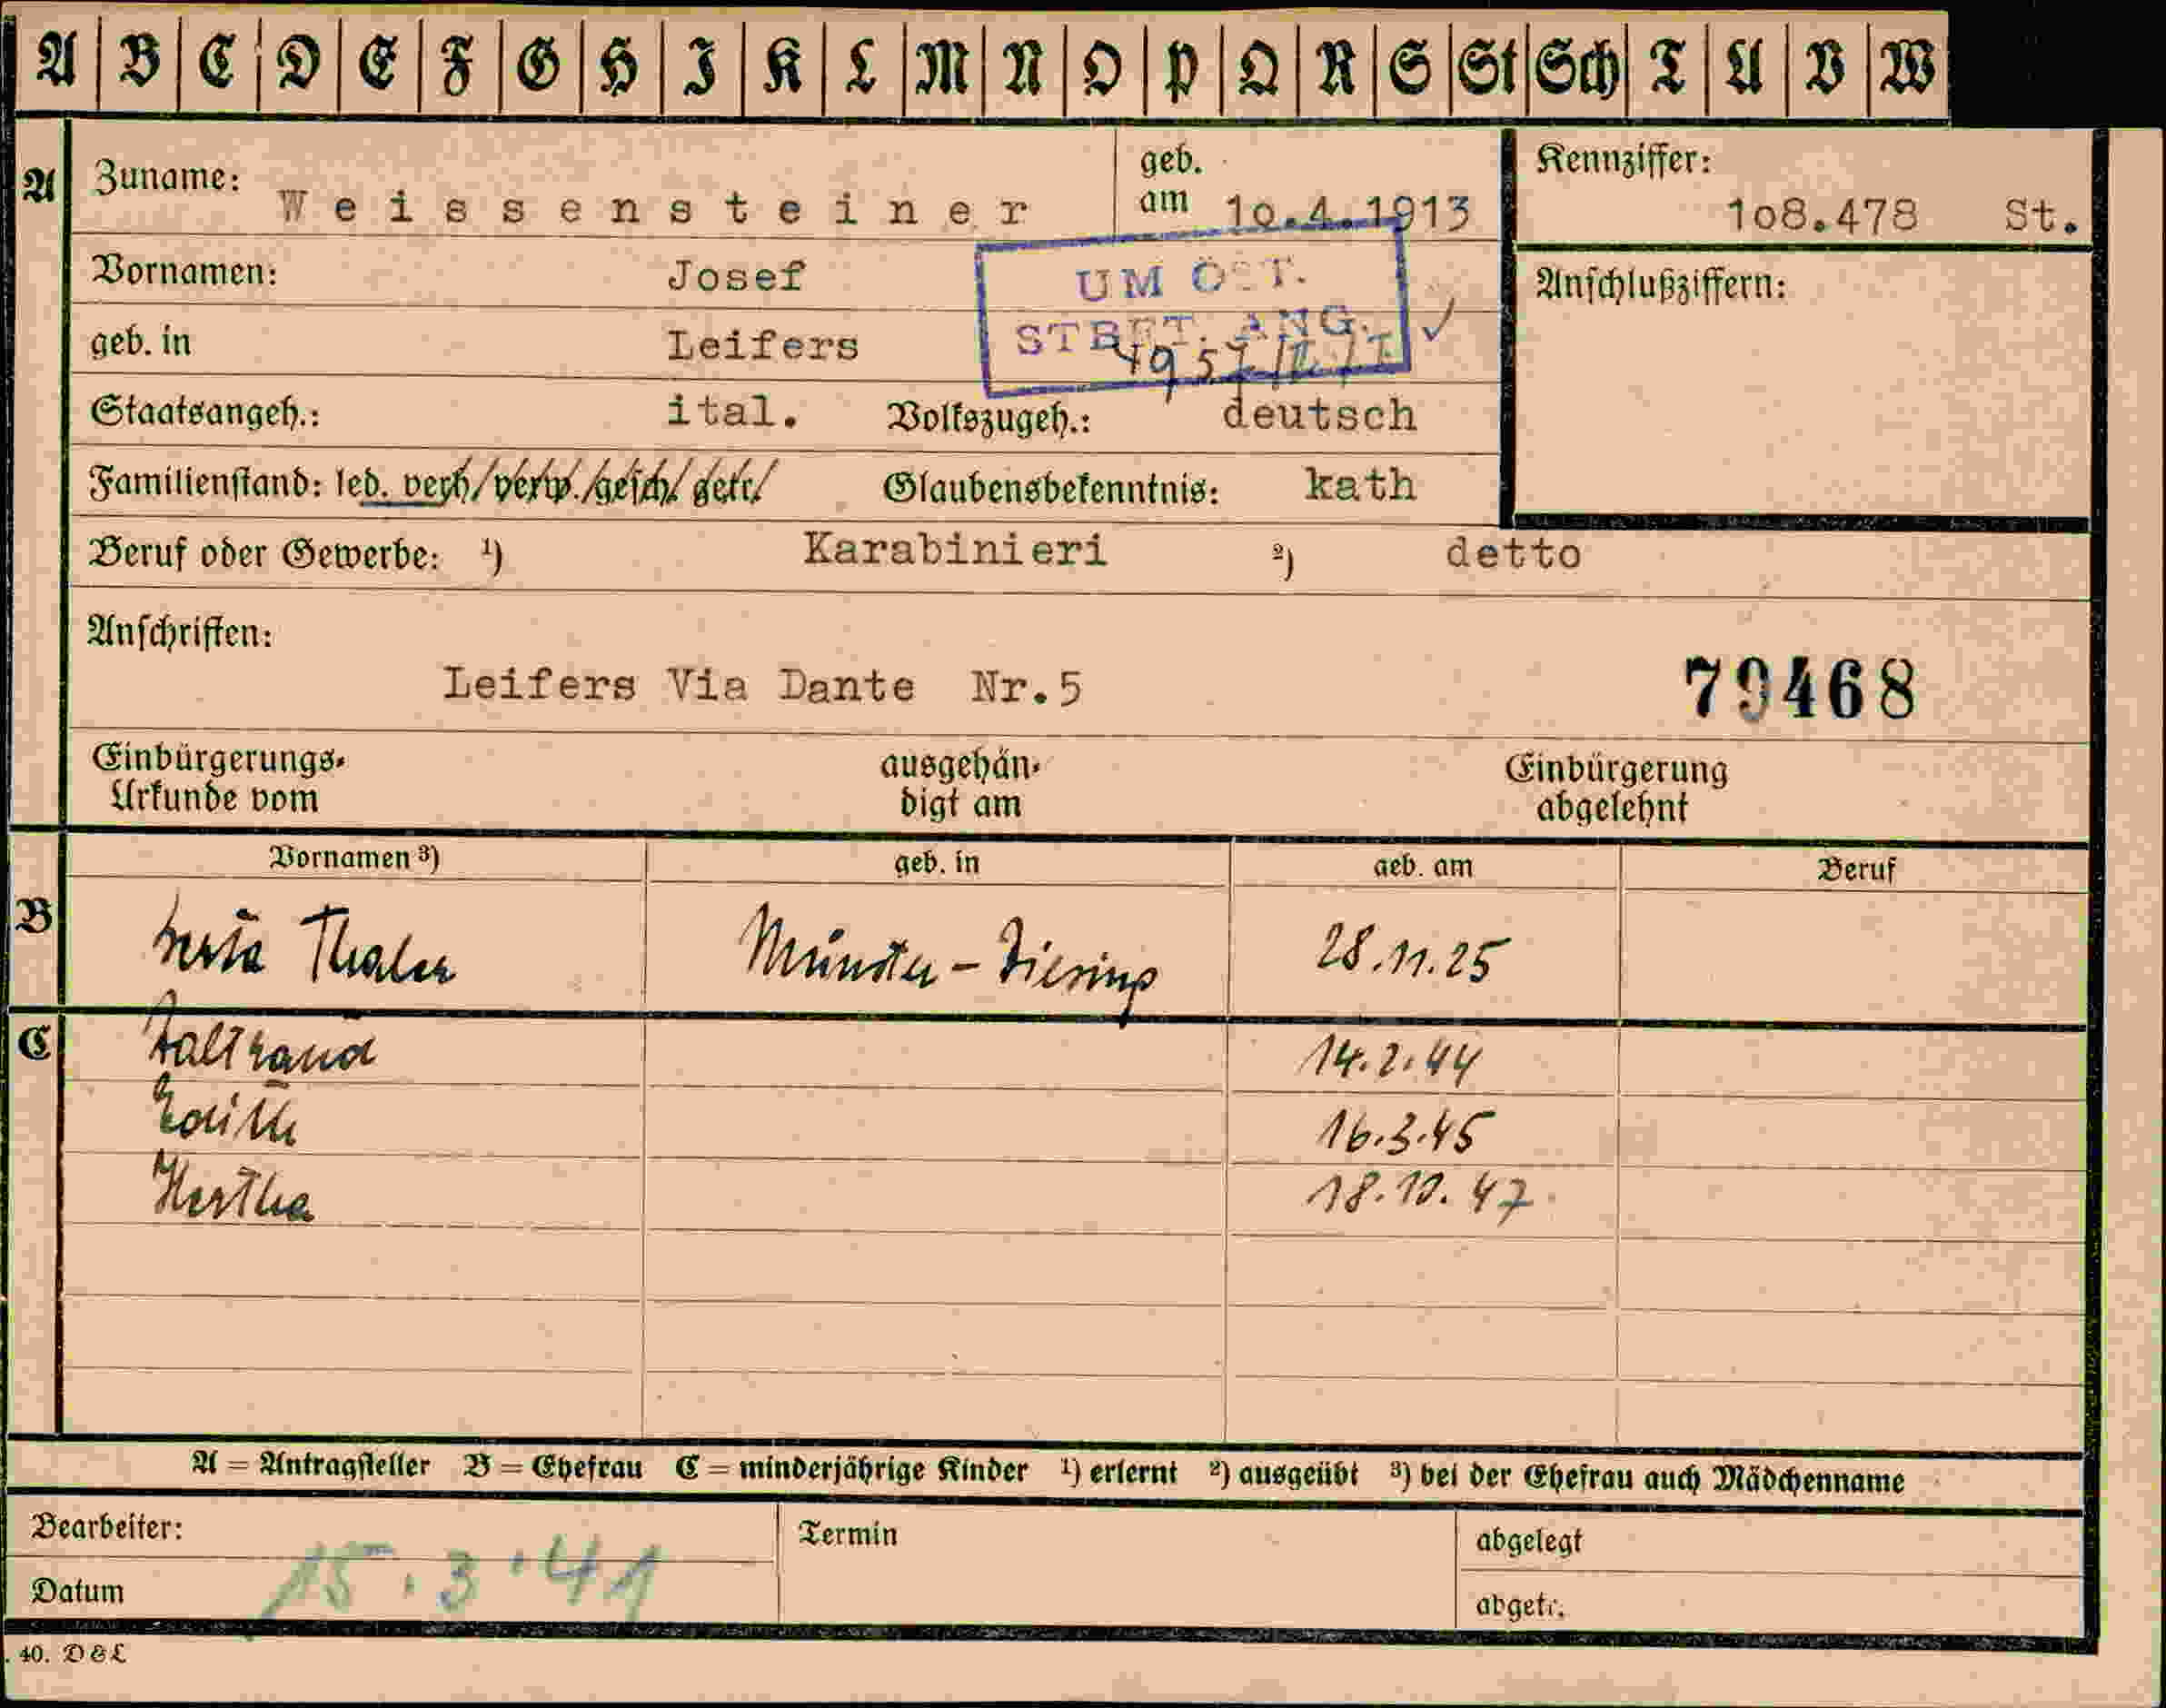 A B C D E F G H I K L M N O P Q R S St Sch T U V W
A Zuname: Weissensteiner geb. am 10.4.1913 Kennziffer: 1o8.478 St.
Vornamen: Josef UM ÖST. Anschlußziffern:
geb. in Leifers
Staatsangeh.: ital. Volkszugeh.: deutsch
Familienstand: led. verh/verw./gesch/getr/ Glaubensbekenntnis: kath
Beruf oder Gewerbe: 1) Karabinieri 2) detto
Anschriften:
Leifers Via Dante Nr.5 79468
Einbürgerungs-Urkunde vom ausgehän-digt am Einbürgerung abgelehnt
Vornamen 3) geb. in geb. am Beruf
B Herta Thaler Münster- 28.11.25
C 14.2.44
Edith 16.3.45
Hertha 18.10.47
A = Antragsteller B = Ehefrau C = minderjährige Kinder 1) erlernt 2) ausgeübt 3) bei der Ehefrau auch Mädchenname
Bearbeiter: Termin abgelegt
Datum 15.3.41 abgetr.
40. D & L